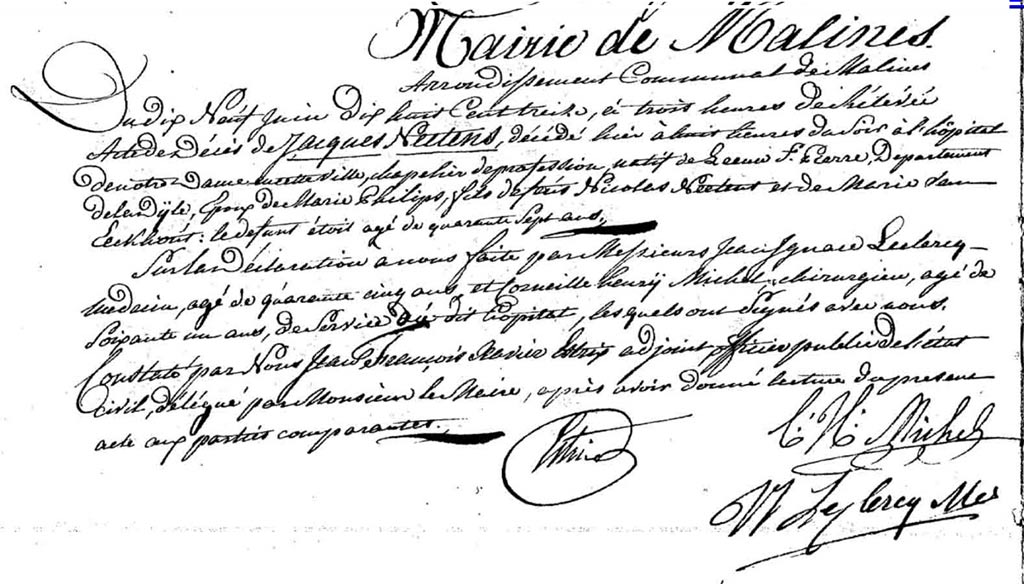 Mairie de Malines.
Arrondissement Communal de Malines
Du dix Neuf Juin dix huit Cent treize, à trois heures de
Acte de décès de Jacques Neetens, décédé hier à huit heures du Soir à l'hôpital
de notre Dame cette ville, chapelier de profession, natif de Leeuw St. Pierre, Departement
de la Dÿle, Epoux de Marie Philips, fils de feus Nicolas Neetens et de Marie Van
Eeckhout: le defunt étoit agé de quarante Sept ans,
Sur la déclaration à nous faite par Messieurs Jean Ignace Leclercq
medecin, agé de quarante cinq ans, et Corneille henry Michel, chirurgien, agé de
Soixante un ans, de Service au dit hopital, lesquels ont Signés avec nous.
Constaté par Nous Jean François Xavier adjoint officier public de l'état
Civil, délégué par Monsieur le Maire, après avoir donné lecture du present
acte aux parties comparantes.
C. H. Michel
Leclercq